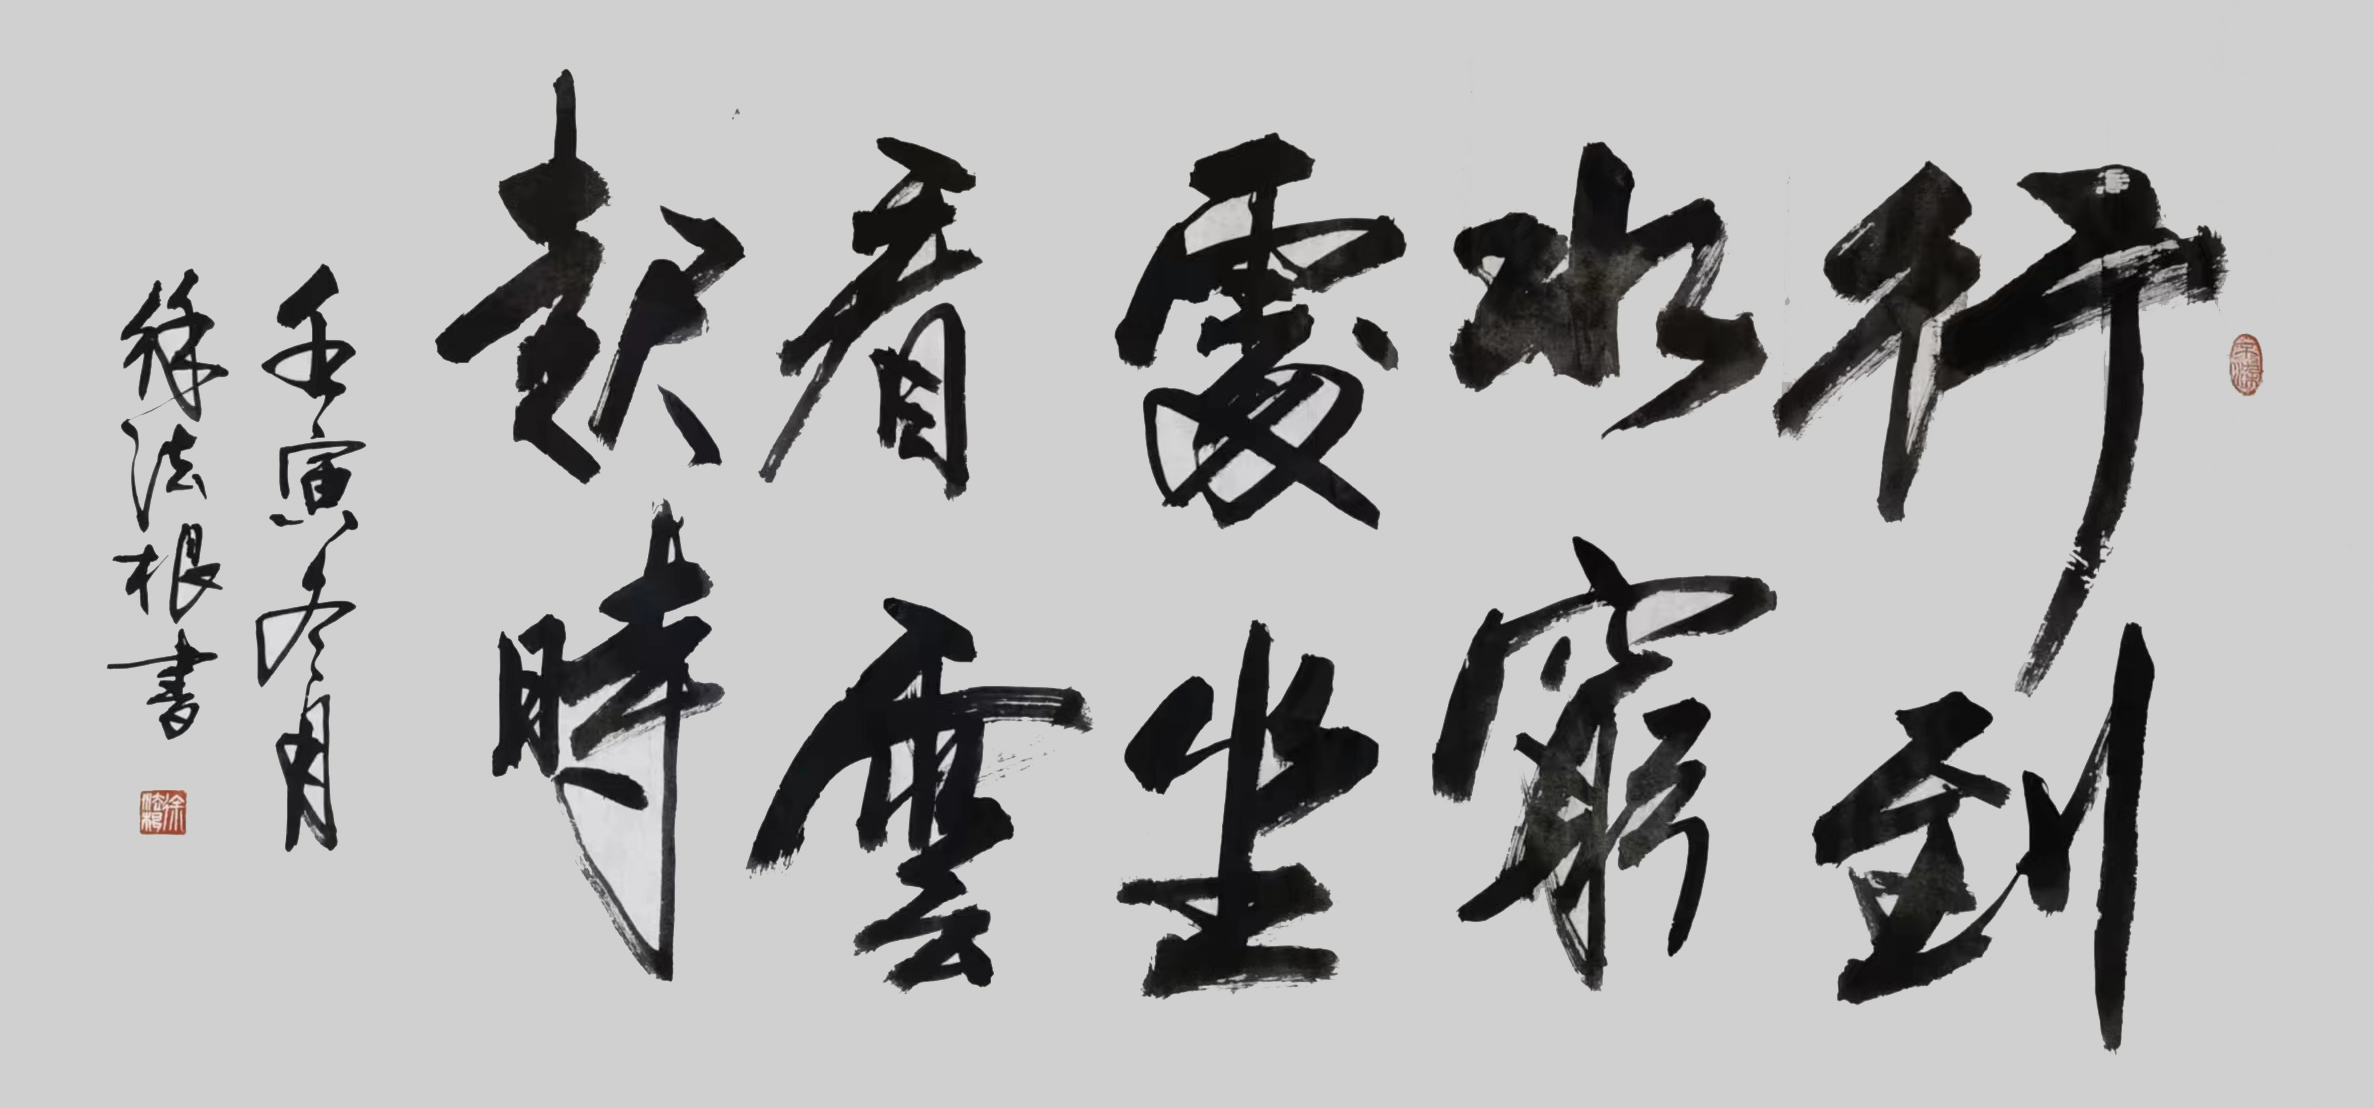 行到
水窮
處坐
看雲
起時
壬寅冬月
徐法根書
徐法根